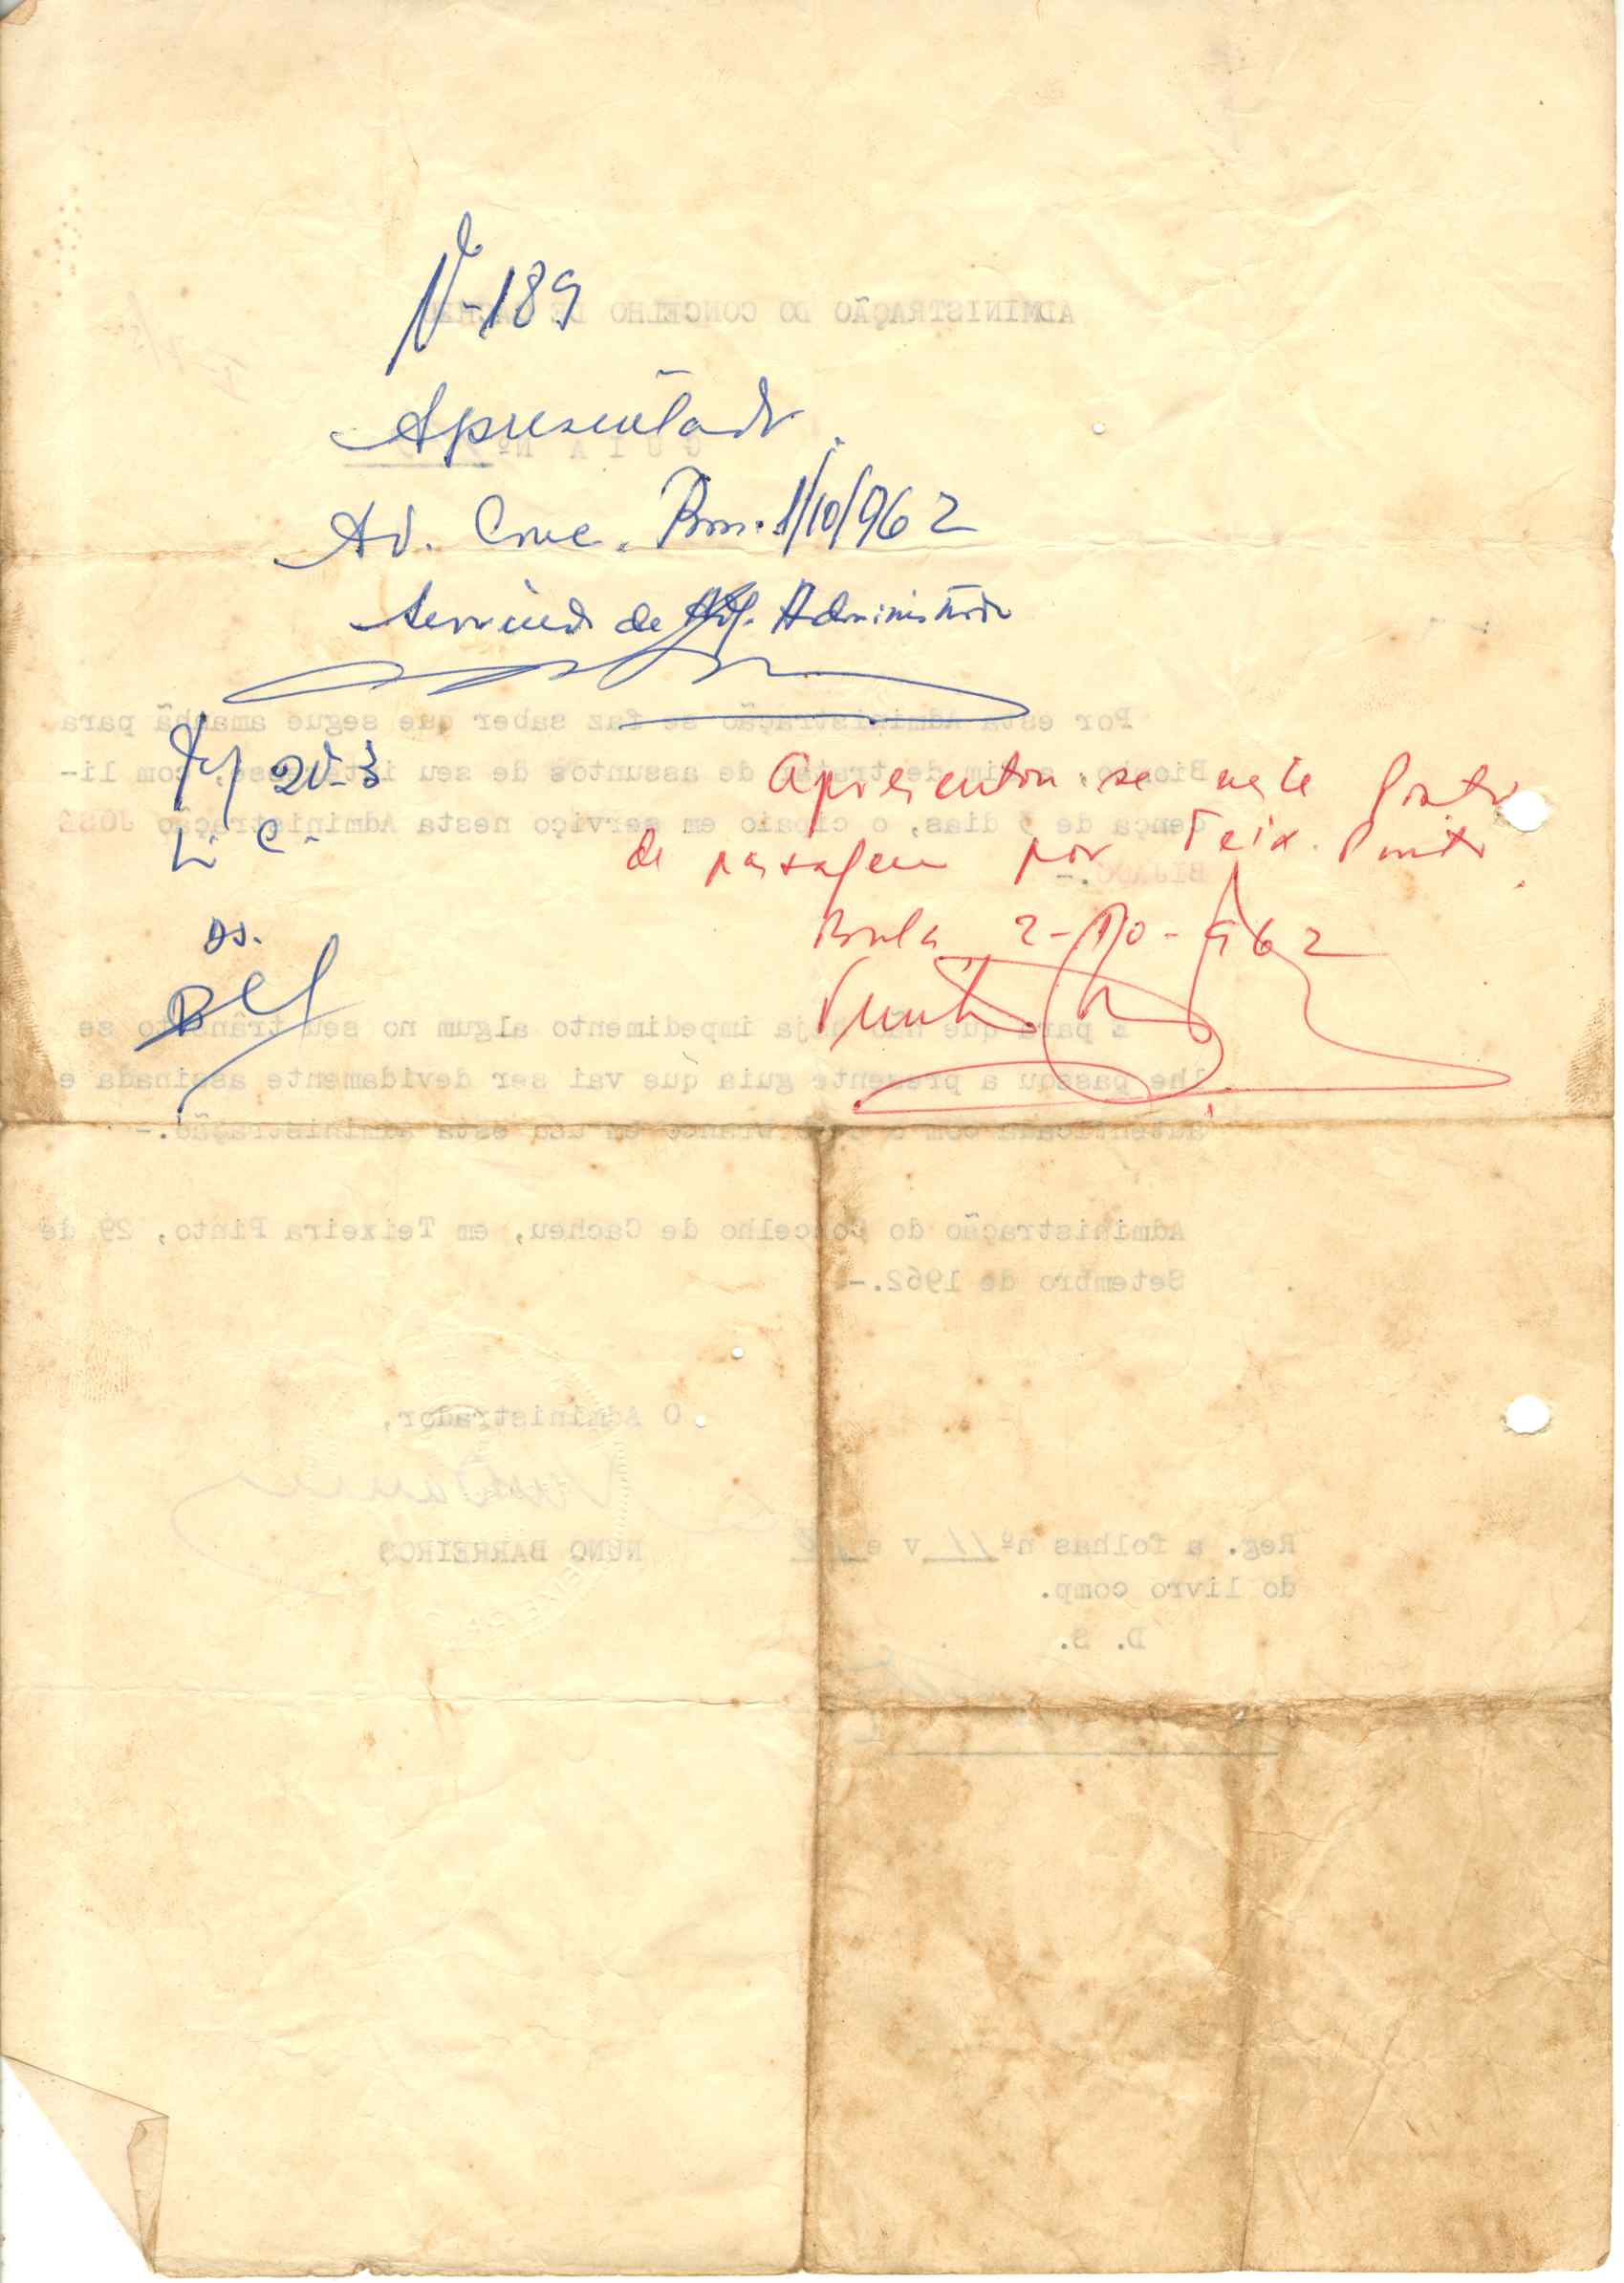 Nº 189
Apresentado
Ad. Conc. Biss. 1/10/962
Servindo de Administrador
20-3
L. C.
Apresentou-se neste Posto
de passagem por Teix. Pinto.
Bula 2-10-962
ADMINISTRAÇÃO DO CONCELHO DE CACHEU
GUIA Nº
Por esta Administração se faz saber que segue amanhã para
Biombo, a fim de tratar de assuntos de seu interesse, com li-
cença de 3 dias, o cipaio em serviço nesta Administração JOSÉ
BIJAGÓ.-
E para que não haja impedimento algum no seu trânsito se
lhe passou a presente guia que vai ser devidamente assinada e
autenticada com o selo branco em uso esta Administração.-
Administração do Concelho de Cacheu, em Teixeira Pinto, 29 de
Setembro de 1962.-
O Administrador,
NUNO BARREIROS
Reg. a folhas nº 11 v e
do livro comp.
D. S.